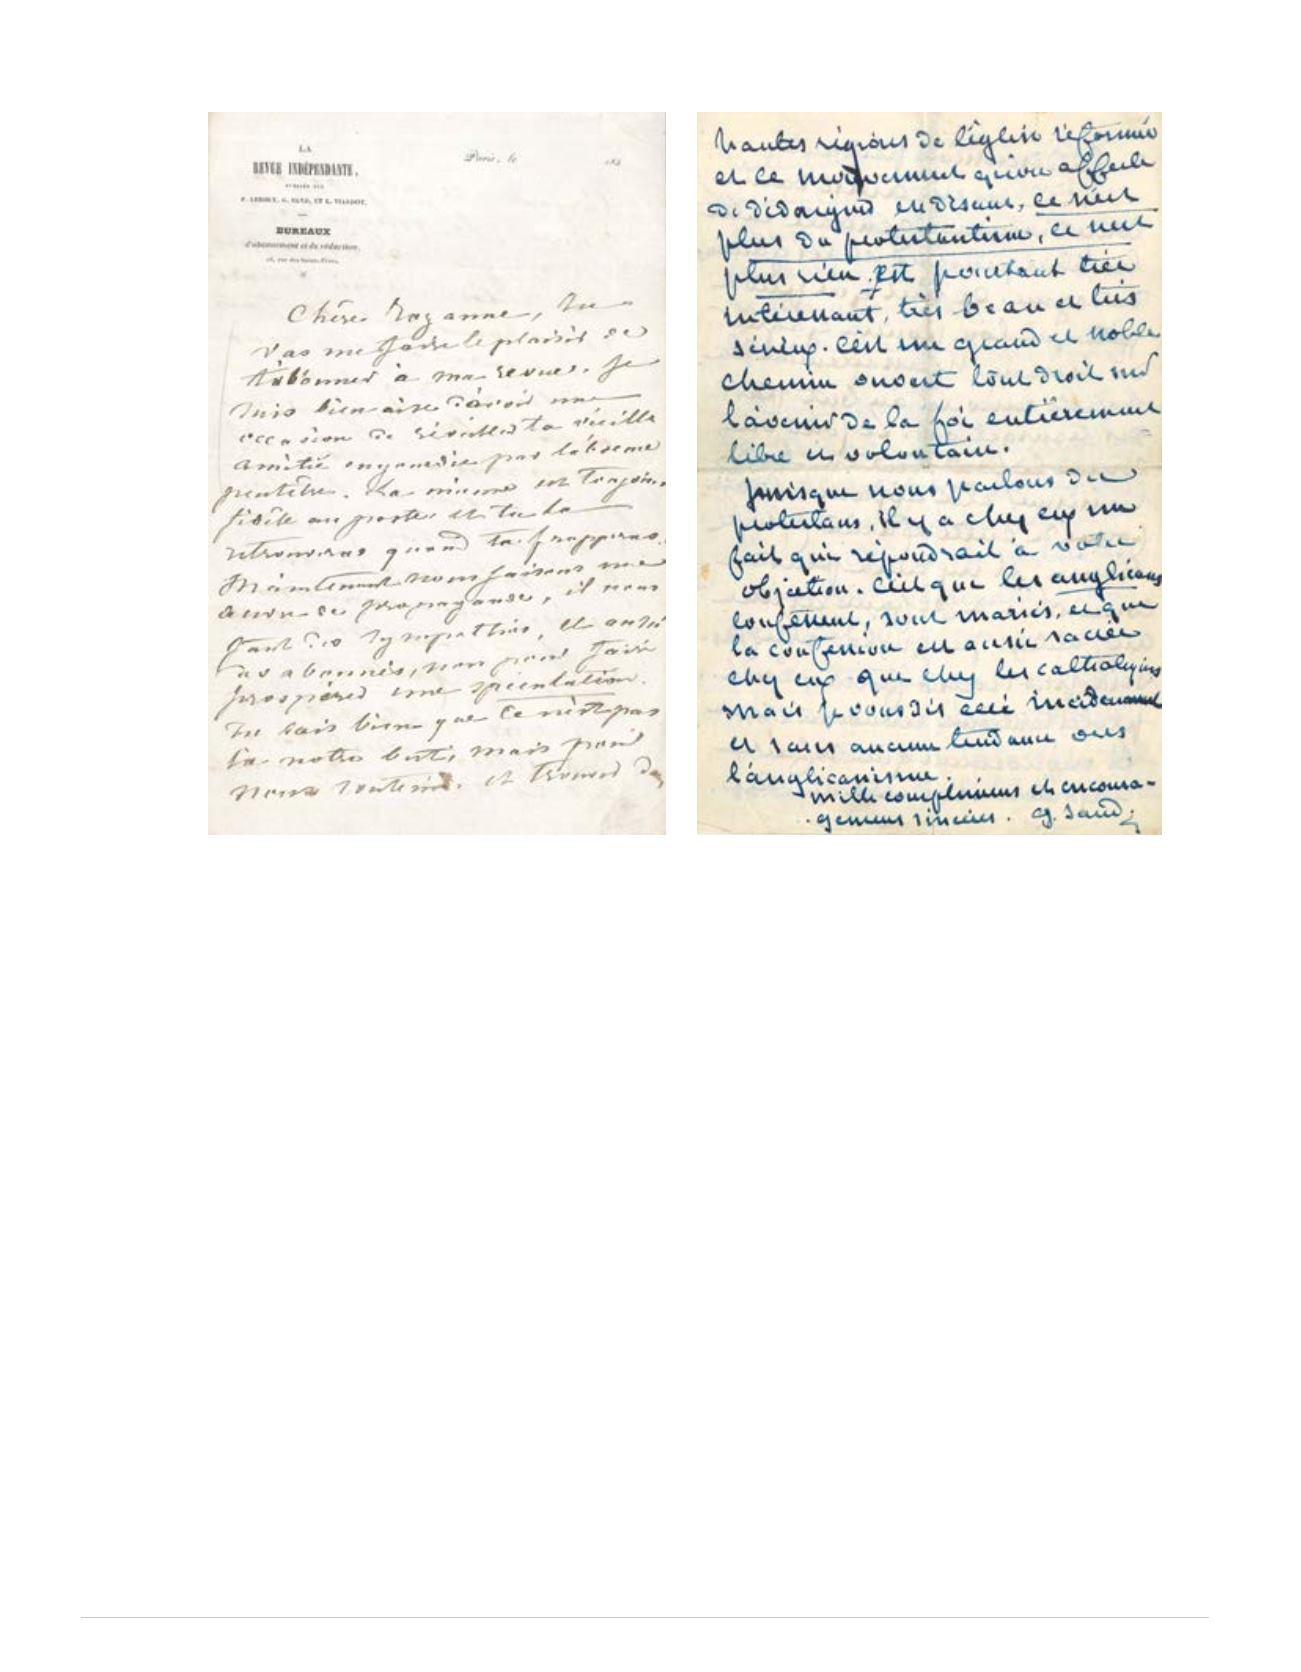 LA
REVUE INDÉPENDANTE,
PUBLIÉE PAR
P. LEROUX, G. SAND, ET L. VIARDOT.
BUREAUX
d'abonnement et de rédaction,
rue des Saints-Pères,
Paris, le 184
Chère Rozanne, Tu
vas me faire le plaisir de
t'abonner à ma revue. Je
suis bien aise d'avoir une
occasion de réveiller ta vieille
amitié engourdie par l'absence
peutêtre. La mienne est toujours
fidèle au poste et tu la
retrouveras quand tu frapperas.
Maintenant nous faisons une
œuvre de propagande, il nous
faut des sympathies, et aussi
des abonnés, non pour faire
prospérer une spéculation.
Tu sais bien que ce n'est pas
là notre but, mais pour
nous soutenir et trouver des
hautes régions de l'église réformée
et ce mouvement qu'on affecte
de dédaigner en disant, ce n'est
plus du protestantisme, ce n'est
plus rien est pourtant très
intéressant, très beau et très
sérieux. C'est un grand et noble
chemin ouvert tout droit sur
l'avenir de la foi entièrement
libre et volontaire.
puisque nous parlons des
protestans, il y a chez eux un
fait qui répondrait à votre
objection. C'est que les anglicans
confessent, sont mariés, et que
la confession est aussi sacrée
chez eux que chez les catholiques
Mais je vous dis ceci incidemment
et sans aucune tendance vers
l'anglicanisme.
mille complimens et encoura-
gemens sincères. G. Sand